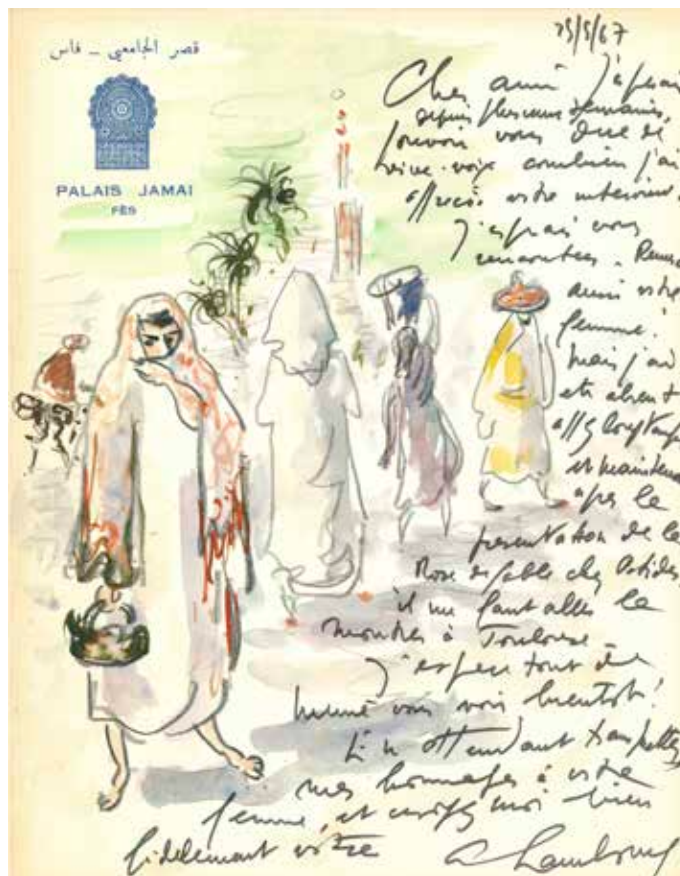 قصر الجامعي - فاس
PALAIS JAMAI
FÈS
Cher ami j'espérais
depuis plusieurs semaines,
pouvoir vous dire de
vive-voix combien j'ai
apprécié votre
J'espérais vous
rencontrer.
aussi votre
femme.
Mais j'ai
été absent
assez longtemps
et maintenant
après la
présentation de la
Rose de Sable chez
il me faut aller la
montrer à Toulouse
J'espère tout de
même vous voir bientôt!
En attendant transmettez
mes hommages à votre
femme, et croyez moi bien
fidèlement vôtre
A Hambourg